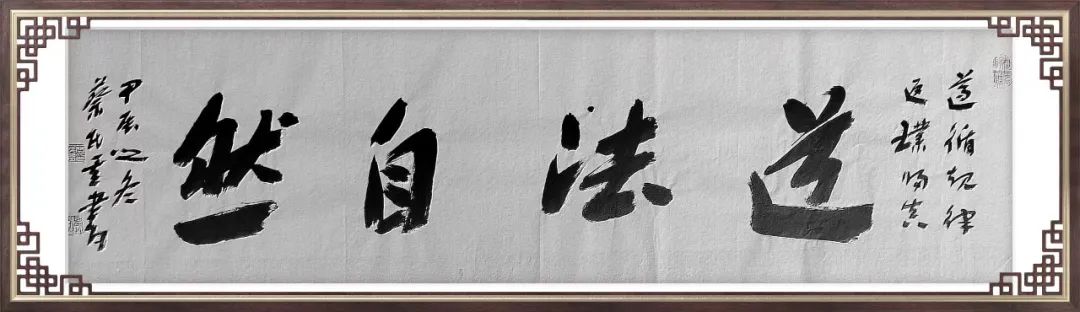 遵循规律
返璞归真
道法自然
甲辰之冬
蔡書